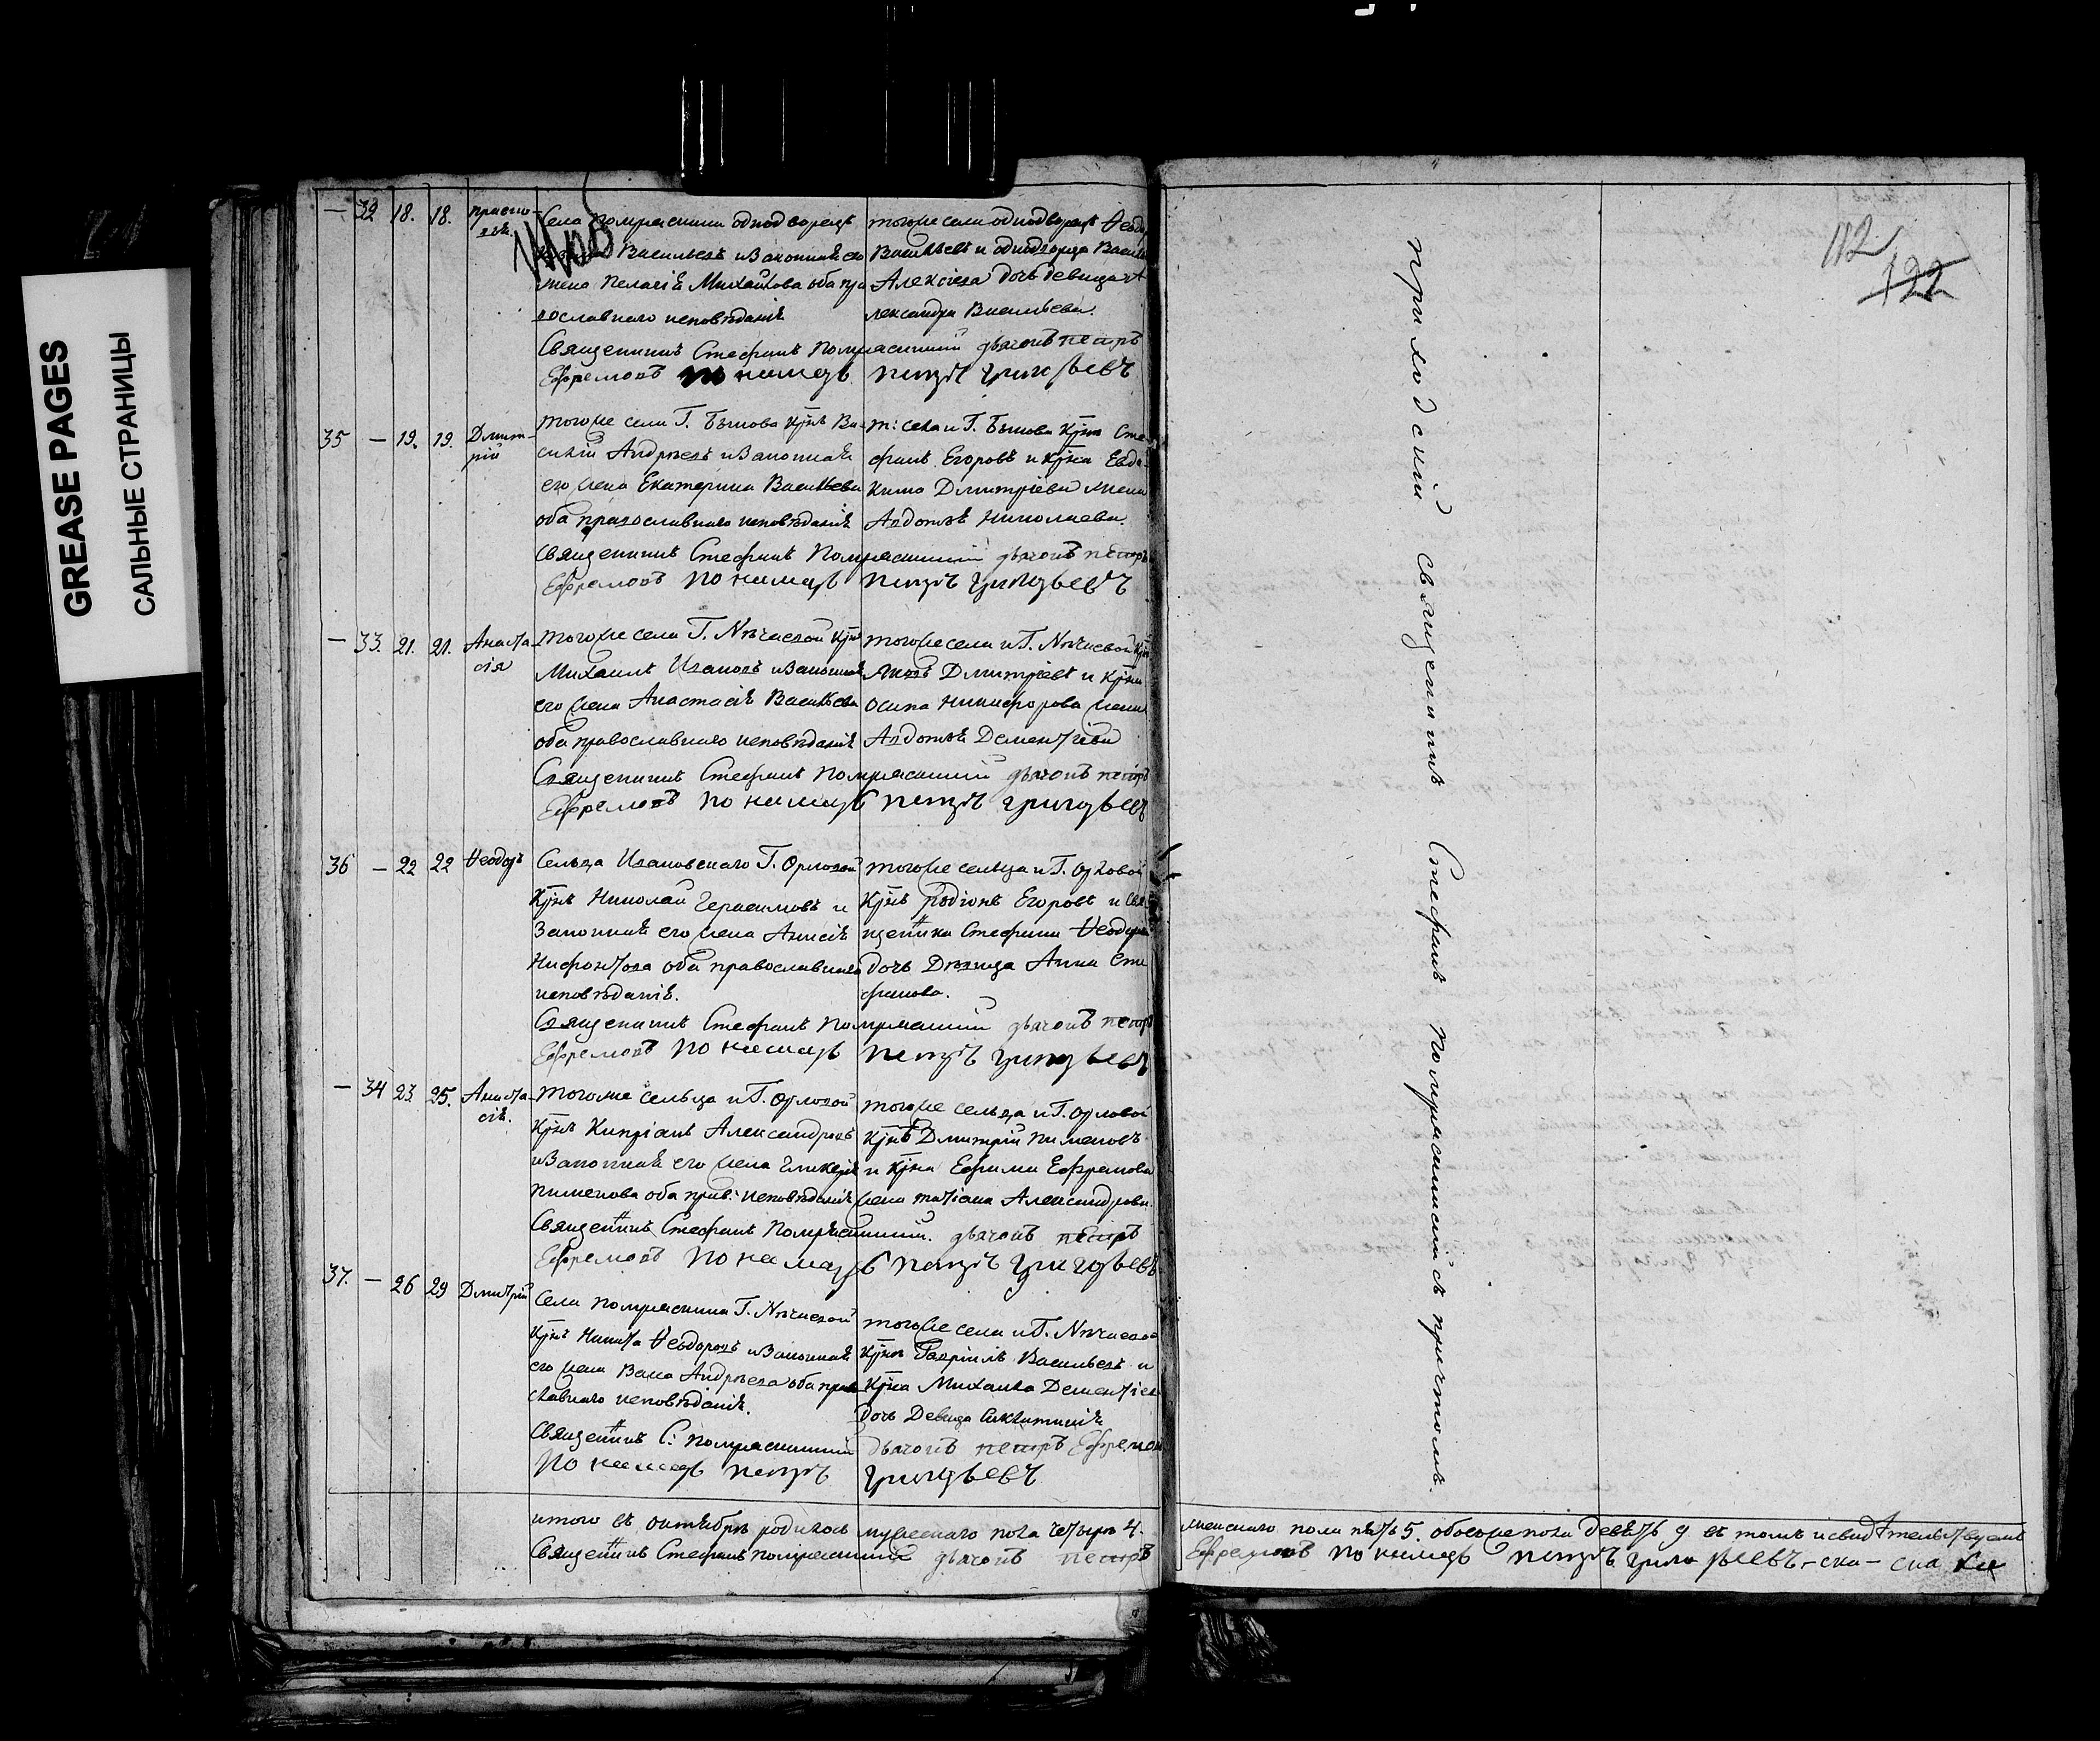 GREASE PAGES
САЛЬНЫЕ СТРАНИЦЫ
112
122
— 32 18. 18.
Села однодворецъ
Васильевъ и законная его
жена Пелагія Михайлова оба пра
вославнаго исповѣданія
тогоже села однодворецъ Ѳеодоръ
Васильевъ и однодворца
Алексѣева дочь девица А
лександра Васильева.
Священникъ Стефанъ дьячокъ Петръ
Ефремовъ пономарь Петръ Григорьевъ
35 — 19. 19. Дмит-
рій
тогоже села Г. крнъ Ва-
силій Андреевъ и законная
его жена Екатерина Васильева
оба православнаго исповѣданія
т: села и Г. крнъ Сте
фанъ Егоровъ и крна Евдо
кима Дмитріева жена
Авдотья Николаева.
Священникъ Стефанъ дьячокъ Петръ
Ефремовъ пономарь Петръ Григорьевъ
— 33. 21. 21. Анаста
сія
тогоже села Г. Нѣчаевой крнъ
Михаилъ Ивановъ и законная
его жена Анастасія Васильева
оба православнаго исповѣданія
тогоже села и Г. Нѣчаевой крнъ
Яковъ Дмитріевъ и крна
Осипа Никифорова жена
Авдотья Дементіева
Священникъ Стефанъ дьячокъ Петръ
Ефремовъ пономарь Петръ Григорьевъ
36 — 22 22 Ѳеодоръ
Сельца Ивановскаго Г. Орловой
крнъ Николай Герасимовъ и
законная его жена Анисія
Нифонтова оба православнаго
исповѣданія.
тогоже сельца и Г. Орловой
крнъ Родіонъ Егоровъ и свя
щенника Стефана Ѳеодорова
дочь дѣвица Анна Сте
фанова.
Священникъ Стефанъ дьячокъ Петръ
Ефремовъ пономарь Петръ Григорьевъ
— 34 23 25. Анаста
сія.
тогоже сельца и Г. Орловой
крнъ Кипріанъ Александровъ
и законная его жена Гликерія
Пименова оба прав: исповѣданія
тогоже сельца и Г. Орловой
крнъ Дмитрій Пименовъ
и крна Ефима Ефремова
жена Татіана Александрова.
Священникъ Стефанъ дьячокъ Петръ
Ефремовъ пономарь Петръ Григорьевъ
37. — 26 29 Дмитрій
Села Г. Нѣчаевой
крнъ Никита Ѳеодоровъ и законная
его жена Андреева оба право
славнаго исповѣданія.
тогоже села и Г. Нѣчаевой
крнъ Гавріилъ Васильевъ и
крна Михаила Дементіева
дочь девица
Священникъ С: дьячокъ Петръ Ефремовъ
пономарь Петръ Григорьевъ
итого въ октябрѣ родилось мужескаго пола четыре 4.
женскаго пола пять 5. обоегоже пола девять 9 въ томъ и свидѣтельствуемъ
Священникъ Стефанъ дьячокъ Петръ
Ефремовъ пономарь Петръ Григорьевъ
приходскій священникъ Стефанъ съ причтомъ.